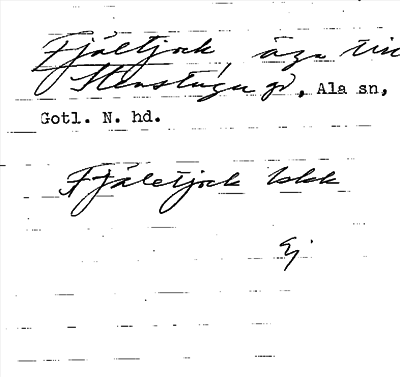 Fjältjock, äga till
Stenstugu gd, Ala sn,
Gotl. N. hd.
Fjäletjock lokk
Ej